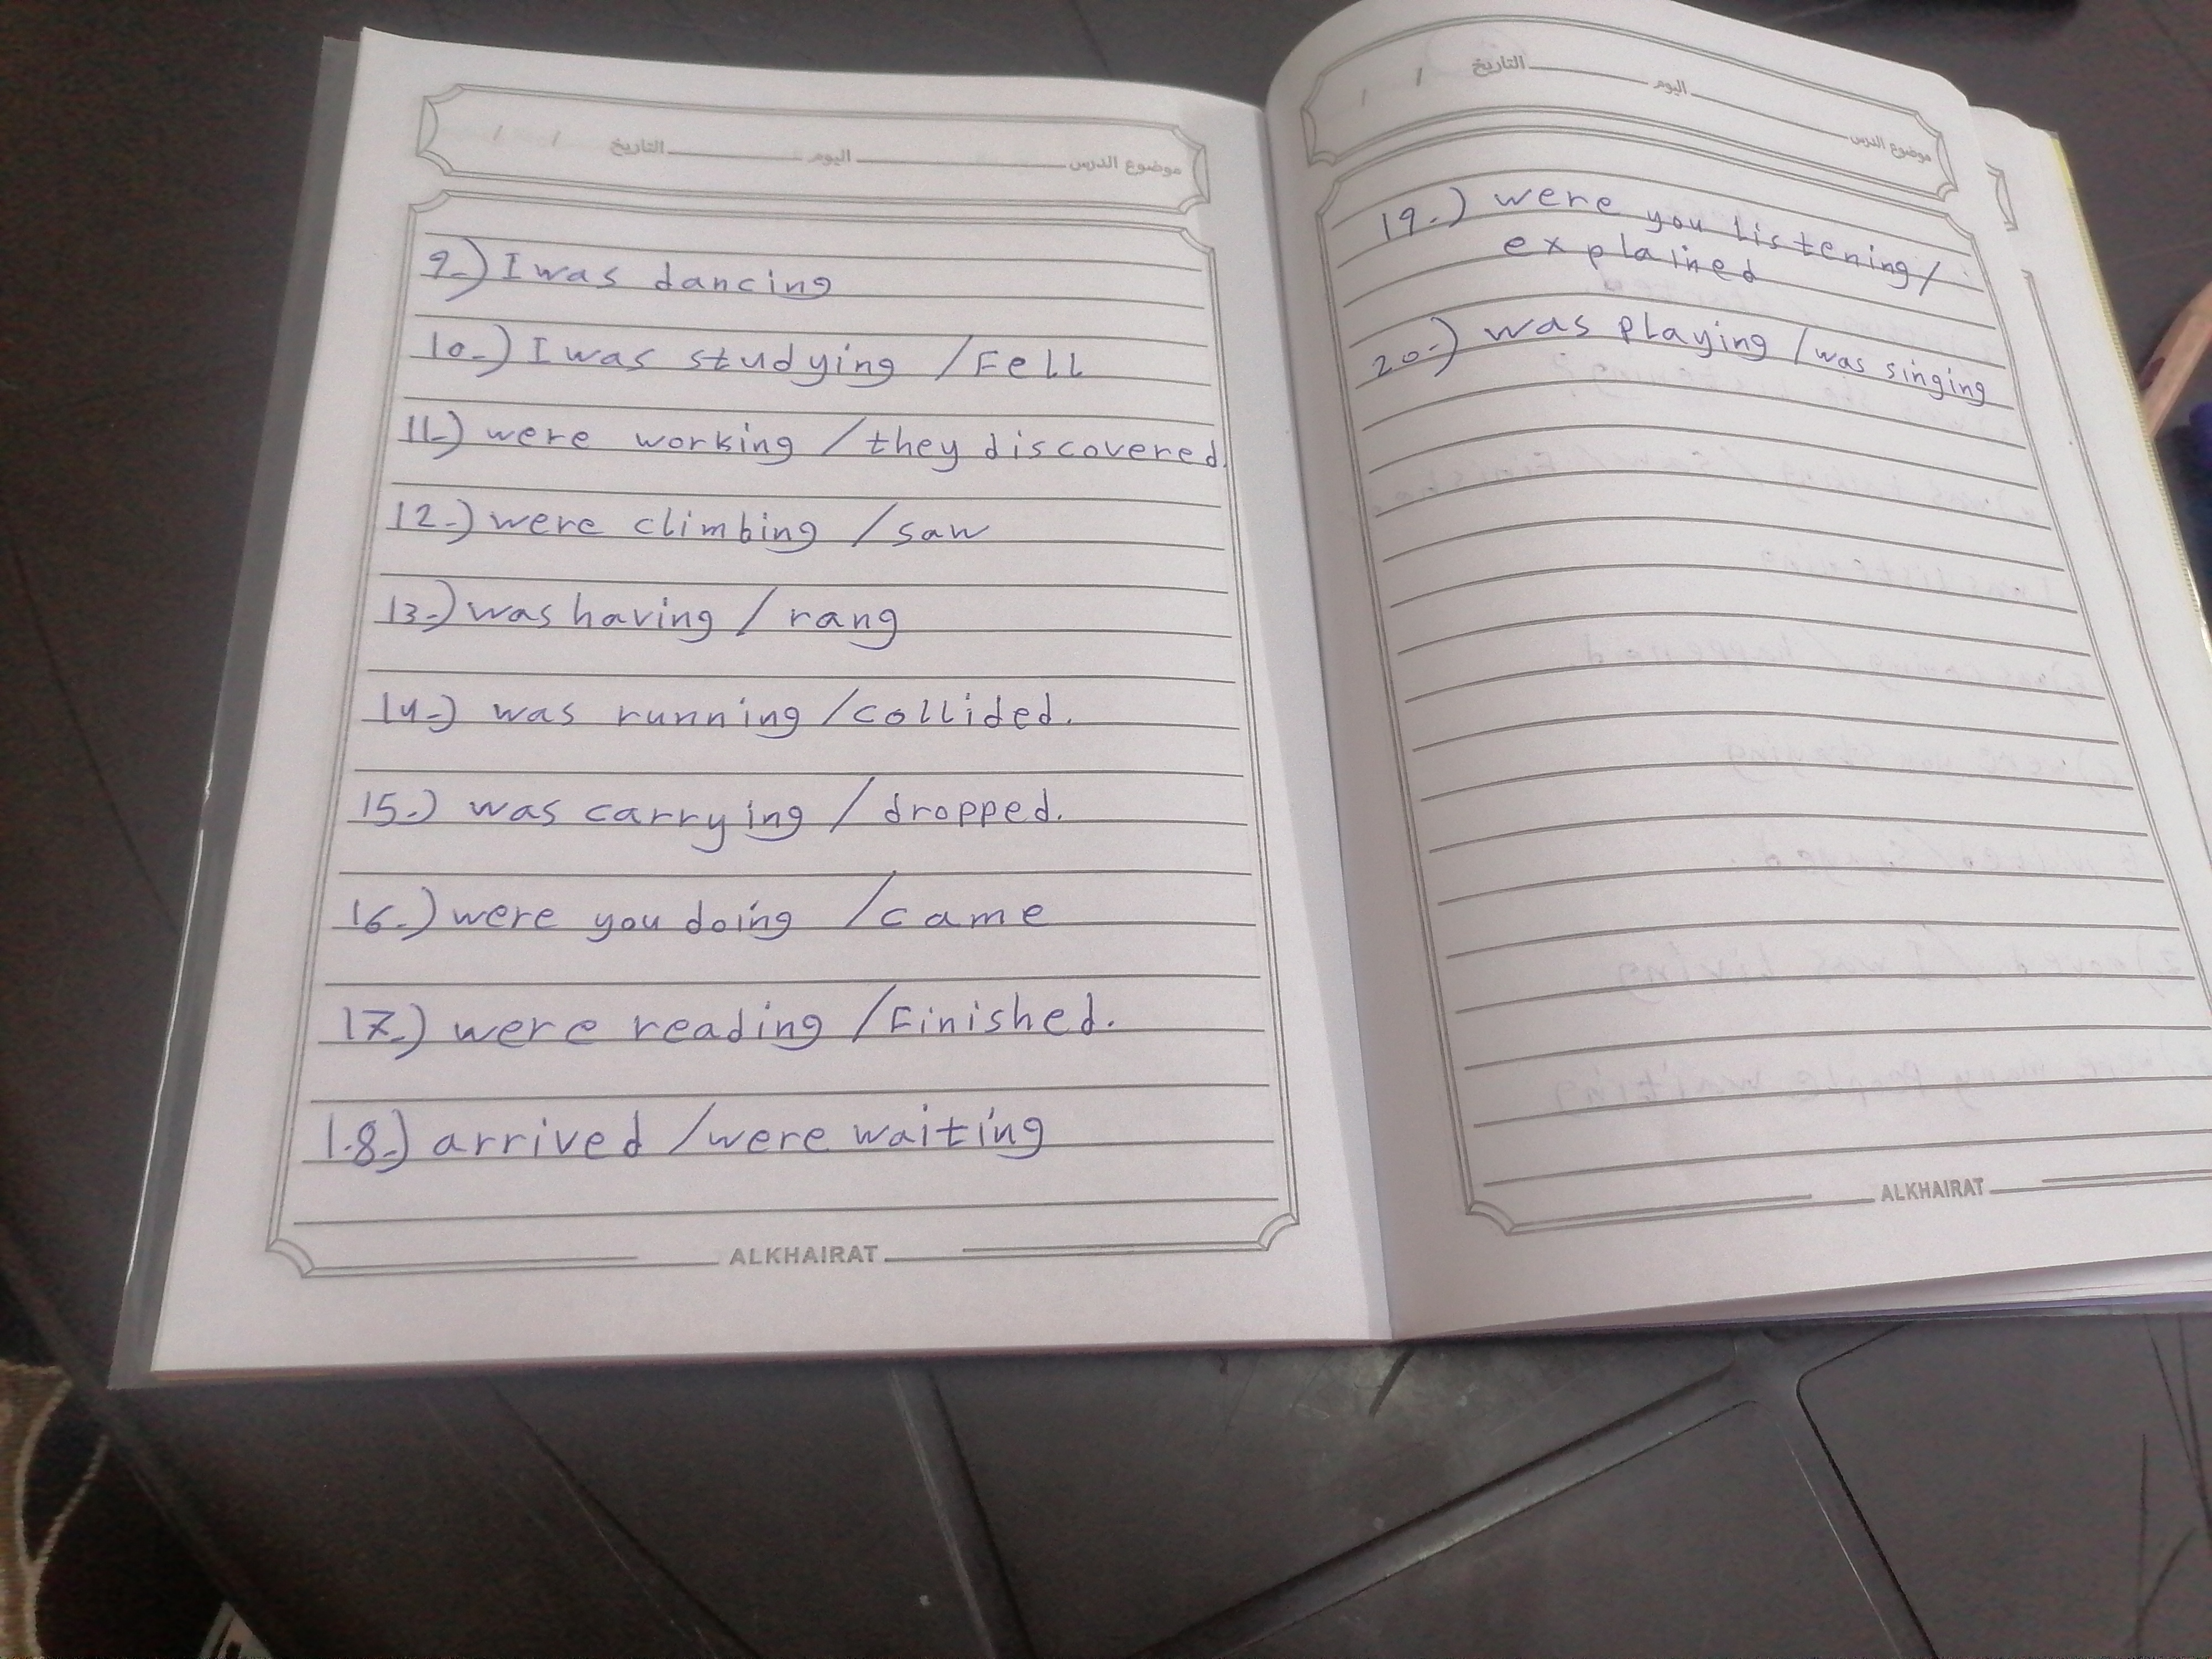 موضوع الدرس اليوم التاريخ / /
9-) I was dancing
10-) I was studying / Fell
11-) were working / they discovered.
12-) were climbing / saw
13-) was having / rang
14-) was running / collided.
15-) was carrying / dropped.
16-) were you doing / came
17-) were reading / Finished.
18-) arrived / were waiting
ALKHAIRAT
موضوع الدرس اليوم التاريخ / /
19-) were you listening /
explained
20-) was playing / was singing
ALKHAIRAT